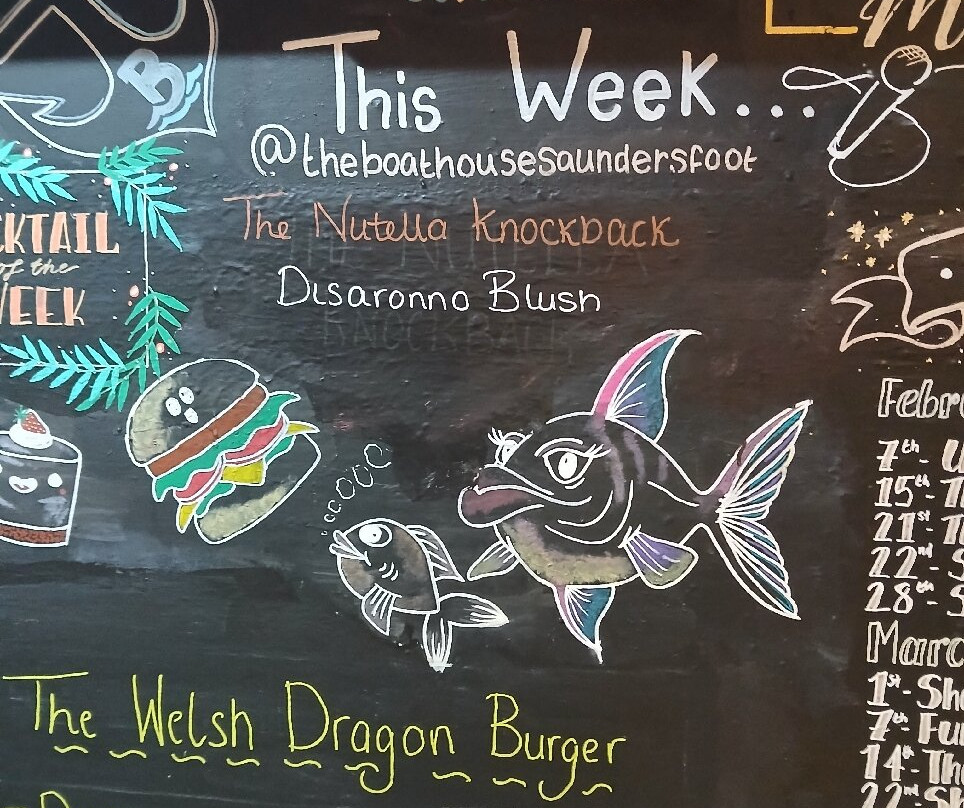 This Week...
@theboathousesaundersfoot
The Nutella Knockback
Disaronno Blush
of the
WEEK
The Welsh Dragon Burger
7th -
15th -
21st -
22nd -
28th -
1st -
7th -
14th -
22nd